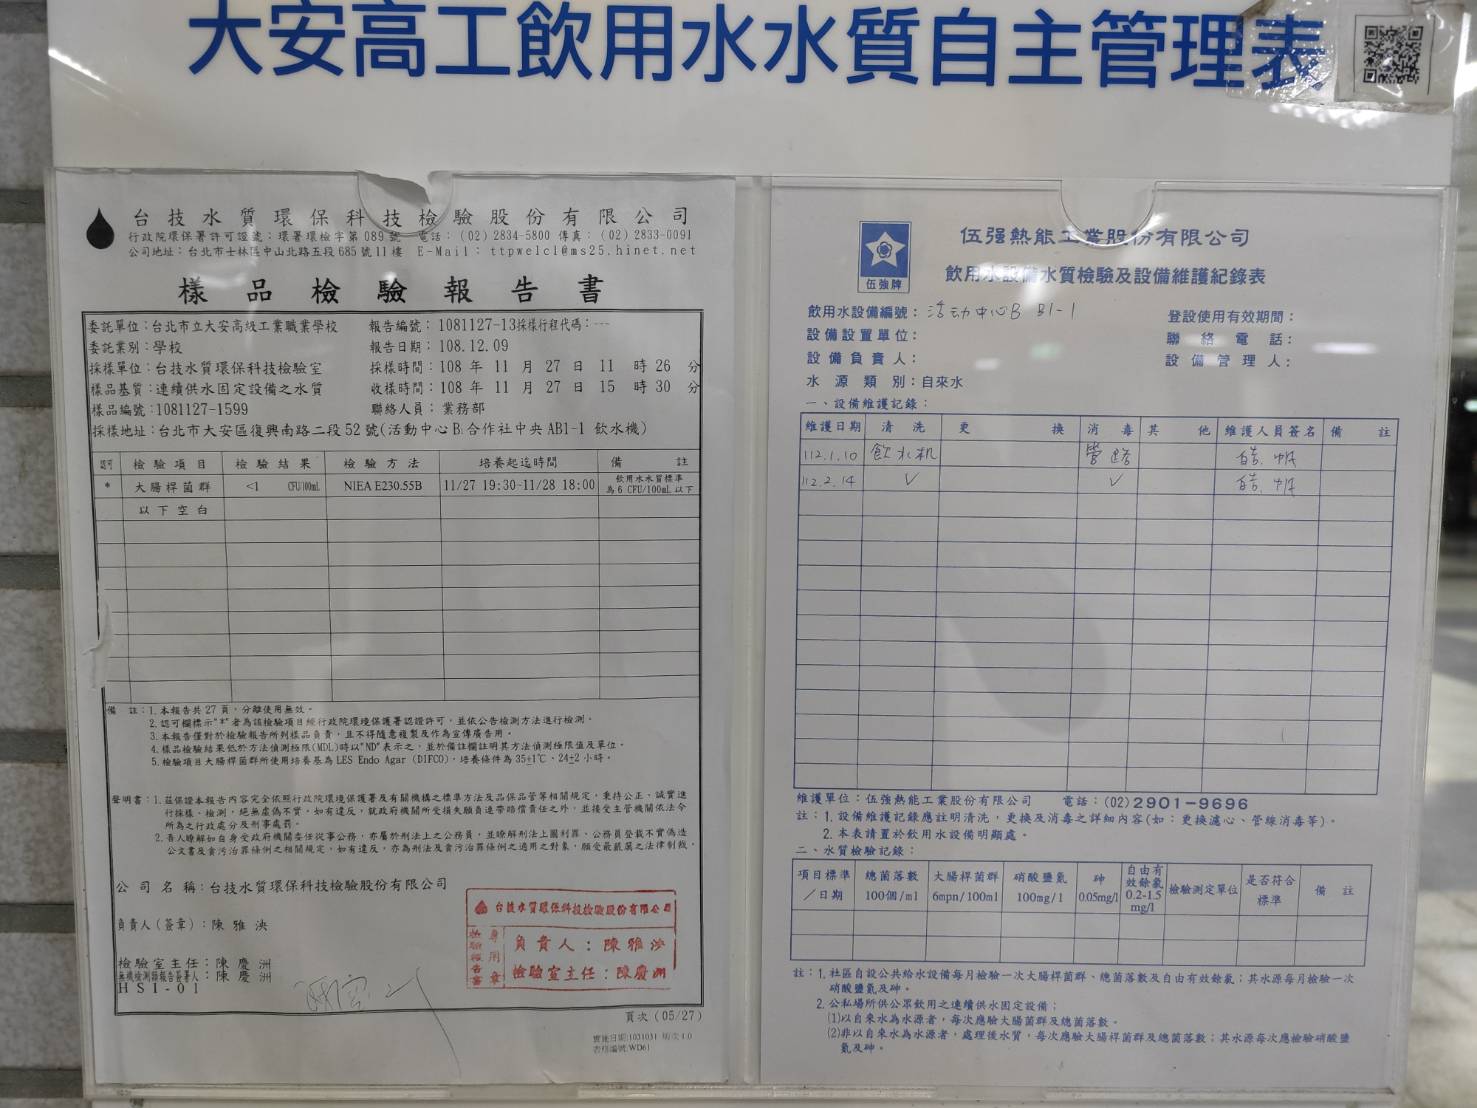 大安高工飲用水水質自主管理表
台技水質環保科技檢驗股份有限公司
行政院環保署許可證號：環署環檢字第 089 號 電話：(02) 2834-5800 傳真：(02) 2833-0091
公司地址：台北市士林區中山北路五段 685 號 11 樓 E-Mail：ttpwelcl@ms25.hinet.net
樣品檢驗報告書
委託單位：台北市立大安高級工業職業學校 報告編號：1081127-13採樣行程代碼：---
委託業別：學校 報告日期：108.12.09
採樣單位：台技水質環保科技檢驗室 採樣時間：108 年 11 月 27 日 11 時 26 分
樣品基質：連續供水固定設備之水質 收樣時間：108 年 11 月 27 日 15 時 30 分
樣品編號：1081127-1599 聯絡人員：業務部
採樣地址：台北市大安區復興南路二段 52 號(活動中心 B 合作社中央 AB1-1 飲水機)
認可 檢驗項目 檢驗結果 檢驗方法 培養起迄時間 備註
* 大腸桿菌群 <1 CFU/100mL NIEA E230.55B 11/27 19:30-11/28 18:00 飲用水水質標準為 6 CFU/100mL 以下
以下空白
備註：1.本報告共 27 頁，分離使用無效。
2.認可欄標示"*"者為該檢驗項目經行政院環境保護署認證許可，並依公告檢測方法進行檢測。
3.本報告僅對於檢驗報告所列樣品負責，且不得隨意複製及作為宣傳廣告用。
4.樣品檢驗結果低於方法偵測極限(MDL)時以"ND"表示之，並於備註欄註明其方法偵測極限值及單位。
5.檢驗項目大腸桿菌群所使用培養基為 LES Endo Agar (DIFCO)，培養條件為 35±1℃、24±2 小時。
聲明書：1.茲保證本報告內容完全依照行政院環境保護署及有關機構之標準方法及品保品管等相關規定，秉持公正、誠實進
行採樣、檢測，絕無虛偽不實，如有違反，就政府機關所受損失願負連帶賠償責任之外，並接受主管機關依法令
所為之行政處分及刑事處罰。
2.吾人瞭解如自身受政府機關委任從事公務，亦屬於刑法上之公務員，並瞭解刑法上圖利罪、公務員登載不實偽造
公文書及貪污治罪條例之相關規定，如有違反，亦為刑法及貪污治罪條例之適用之對象，願受最嚴厲之法律制裁。
公司名稱：台技水質環保科技檢驗股份有限公司
負責人(簽章)：陳雅泱
檢驗室主任：陳慶洲
無機檢測類報告簽署人：陳慶洲
HSI-01
台技水質環保科技檢驗股份有限公司
檢驗報告書專用章
負責人：陳雅泱
檢驗室主任：陳慶洲
頁次 (05/27)
實施日期:1031031 版次 4.0
表格編號:WD61
伍強牌
伍强熱能工業股份有限公司
飲用水設備水質檢驗及設備維護紀錄表
飲用水設備編號：活动中心B B1-1 登設使用有效期間：
設備設置單位： 聯絡電話：
設備負責人： 設備管理人：
水源類別：自來水
一、設備維護記錄：
維護日期 清洗 更換 消毒 其他 維護人員簽名 備註
112.1.10 飲水机 管路
112.2.14 ✓ ✓
維護單位：伍強熱能工業股份有限公司 電話：(02)2901-9696
註：1.設備維護記錄應註明清洗，更換及消毒之詳細內容(如：更換濾心、管線消毒等)。
2.本表請置於飲用水設備明顯處。
二、水質檢驗記錄：
項目標準／日期 總菌落數 100個/ml 大腸桿菌群 6mpn/100ml 硝酸鹽氮 100mg/l 砷 0.05mg/l 自由有效餘氯 0.2-1.5 mg/l 檢驗測定單位 是否符合標準 備註
註：1.社區自設公共給水設備每月檢驗一次大腸桿菌群、總菌落數及自由有效餘氯；其水源每月檢驗一次
硝酸鹽氮及砷。
2.公私場所供公眾飲用之連續供水固定設備；
(1)以自來水為水源者，每次應驗大腸菌群及總菌落數。
(2)非以自來水為水源者，處理後水質，每次應驗大腸桿菌群及總菌落數；其水源每次應檢驗硝酸鹽
氮及砷。